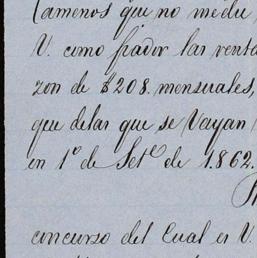 (amenos que no me du
V. como fiador las renta
zon de $208. mensuales,
que delas que se Vayan
en 1º de Setᵉ de 1862.
concurso del Cual es V.